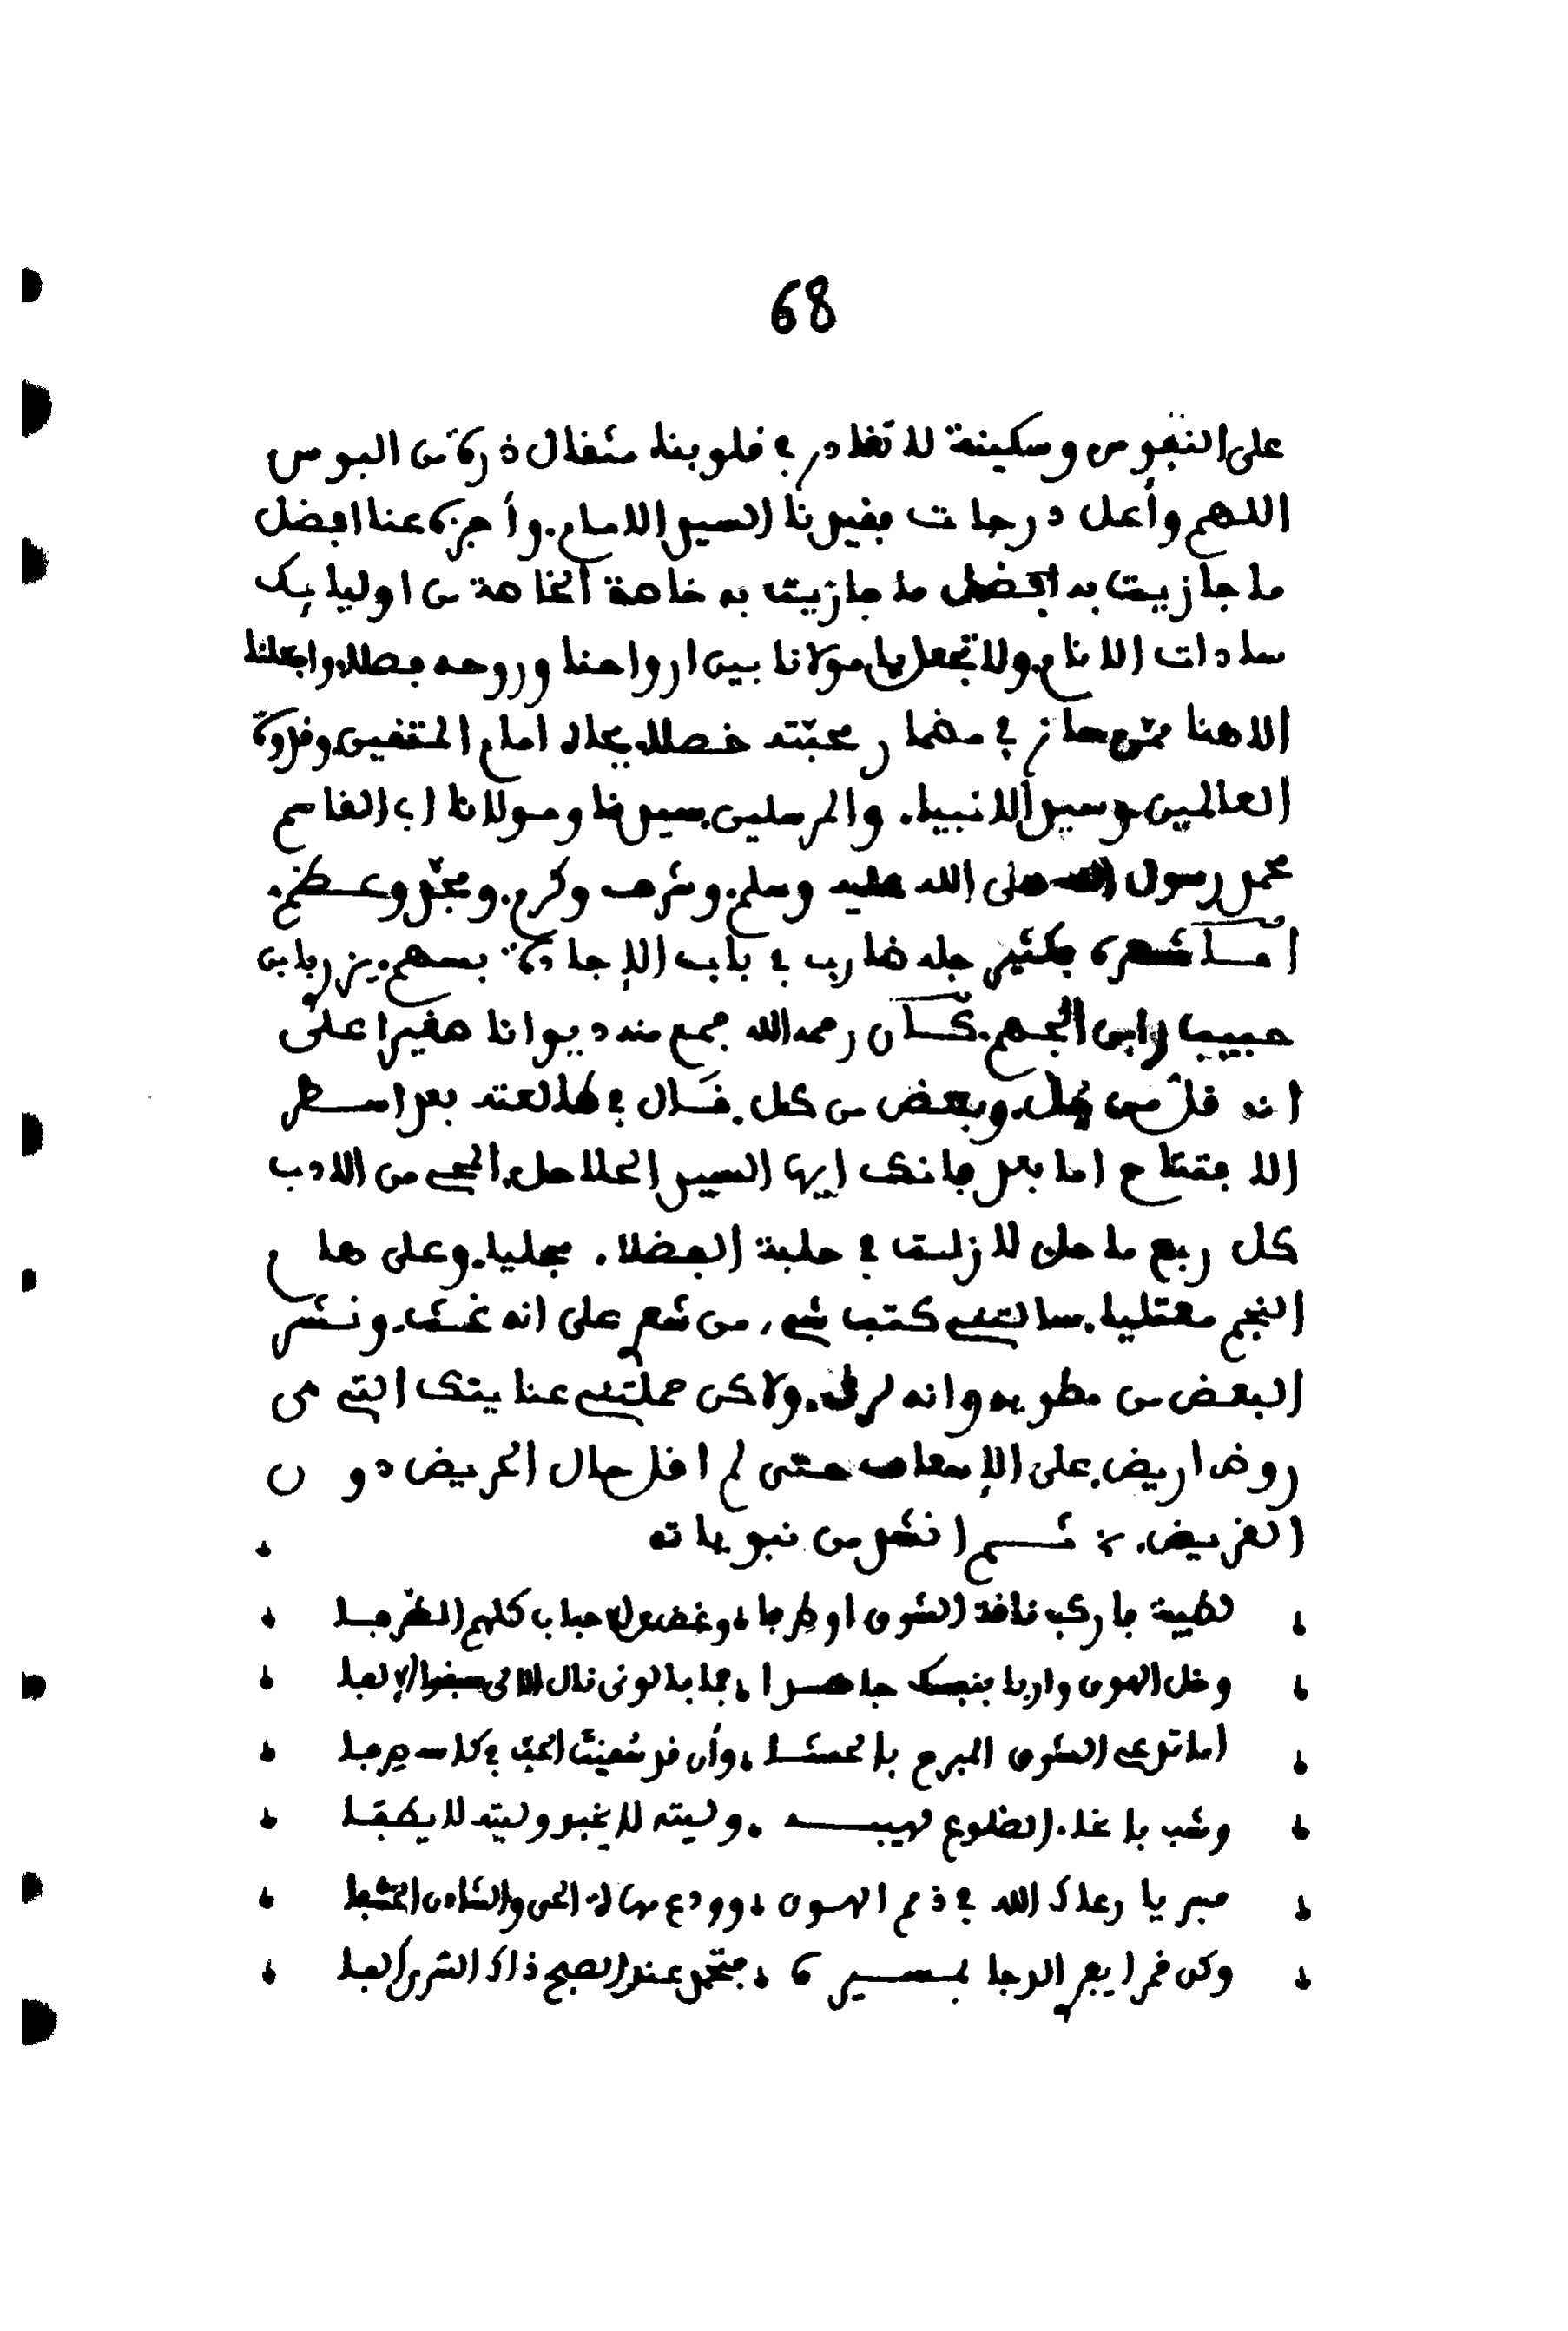 68
على النفوس وسكينة لا تغادر في قلوبنا مثقال ذرة من البوس
اللهم وأعل درجات فقيدنا السيد الامام. وأجزه عنا افضل
ما جازيت به افضل ما جازيت به خاصة الخاصة من اوليايك
سادات الانام. ولا تجعل يا مولانا بين ارواحنا وروحه فصلا. واجعلنا
الاهنا ممن حاز في مضمار محبته خصلا. بجاه امام المتقين. وقدوة
العالمين. وسيد الانبياء. والمرسلين. سيدنا ومولانا اب القاسم
محمد رسول الله صلى الله عليه وسلم. وشرف وكرم. ومجد وعظم.
أما شعره فكثير جله ضارب في باب الإجادة بسهم. يزري بابن
حبيب وابن الجهم. كان رحمه الله جمع منه ديوانا صغيرا على
انه قل من جل. وبعض من كل. قال في طالعته بعد اسطر
الافتتاح اما بعد فانك ايها السيد الحلاحل. المحيي من الادب
كل ربع ماحل لا زلت في حلبة الفضلاء. مجليا. وعلى هام
النجم معتليا. سالتني كتب شيء من شعر على انه غث. ونشر
البعض من مطويه وانه لرث. ولاكن حملتني عنايتك التي هي
روض اريض. على الإسعاف حتى لم اقل حال الجريض دون
القريض. ثم انشد من نبوياته
لطيبة فاركب ناقة الشوق او طرفا، وغض عن الاحباب كلهم الطرفا
وخل الهوى واربا بنفسك جاهدا، فما بالونى نال الالى سبقوا الإلفا
اما ترعى الشوق المبرح بالحشا، وأن قد سقيت الحب في كاسه صرفا
وشب باغاء الضلوع لهيبه، وليته لا يخبو وليته لا يطفا
فسر يا رعاك الله في ذمم الهوى، وودع مهاة الحي والشادن الخشفا
وكن قمرا يفري الدجا بمسيره، فتحمد عند الصبح ذاك السرى العفا